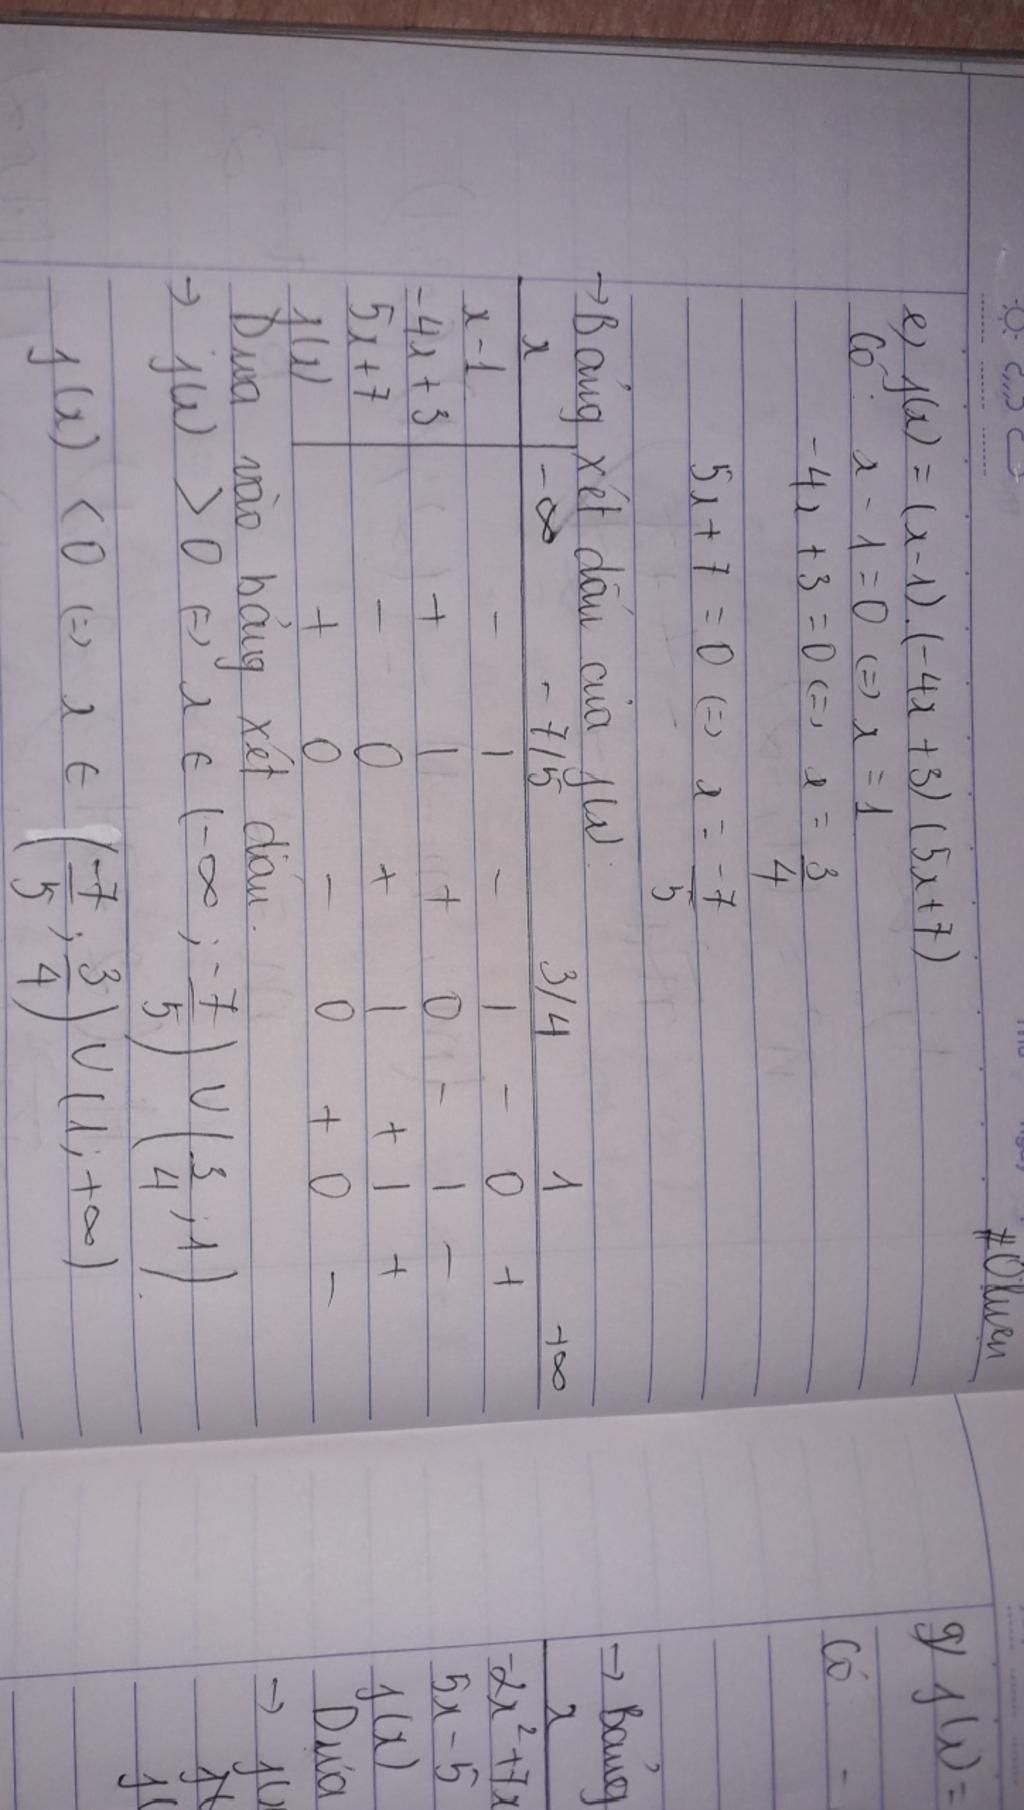 #Oluwen
e, f(x) = (x-1).(-4x+3)(5x+7)
Có: x - 1 = 0 (=) x = 1
-4x + 3 = 0 (=) x = 3/4
5x + 7 = 0 (=) x = -7/5
→ Bảng xét dấu của f(x):
x -∞ -7/5 3/4 1 +∞
x-1 - | - | - 0 +
-4x+3 + | + 0 - | -
5x+7 - 0 + | + | +
f(x) + 0 - 0 + 0 -
Dựa vào bảng xét dấu.
→ f(x) > 0 (=) x ∈ (-∞; -7/5) ∪ (3/4; 1).
f(x) < 0 (=) x ∈ (-7/5; 3/4) ∪ (1; +∞)
g, f(x) =
Có -
→ Bảng
x
-2x²+7x
5x-5
f(x)
Dựa
→ f(x
f(